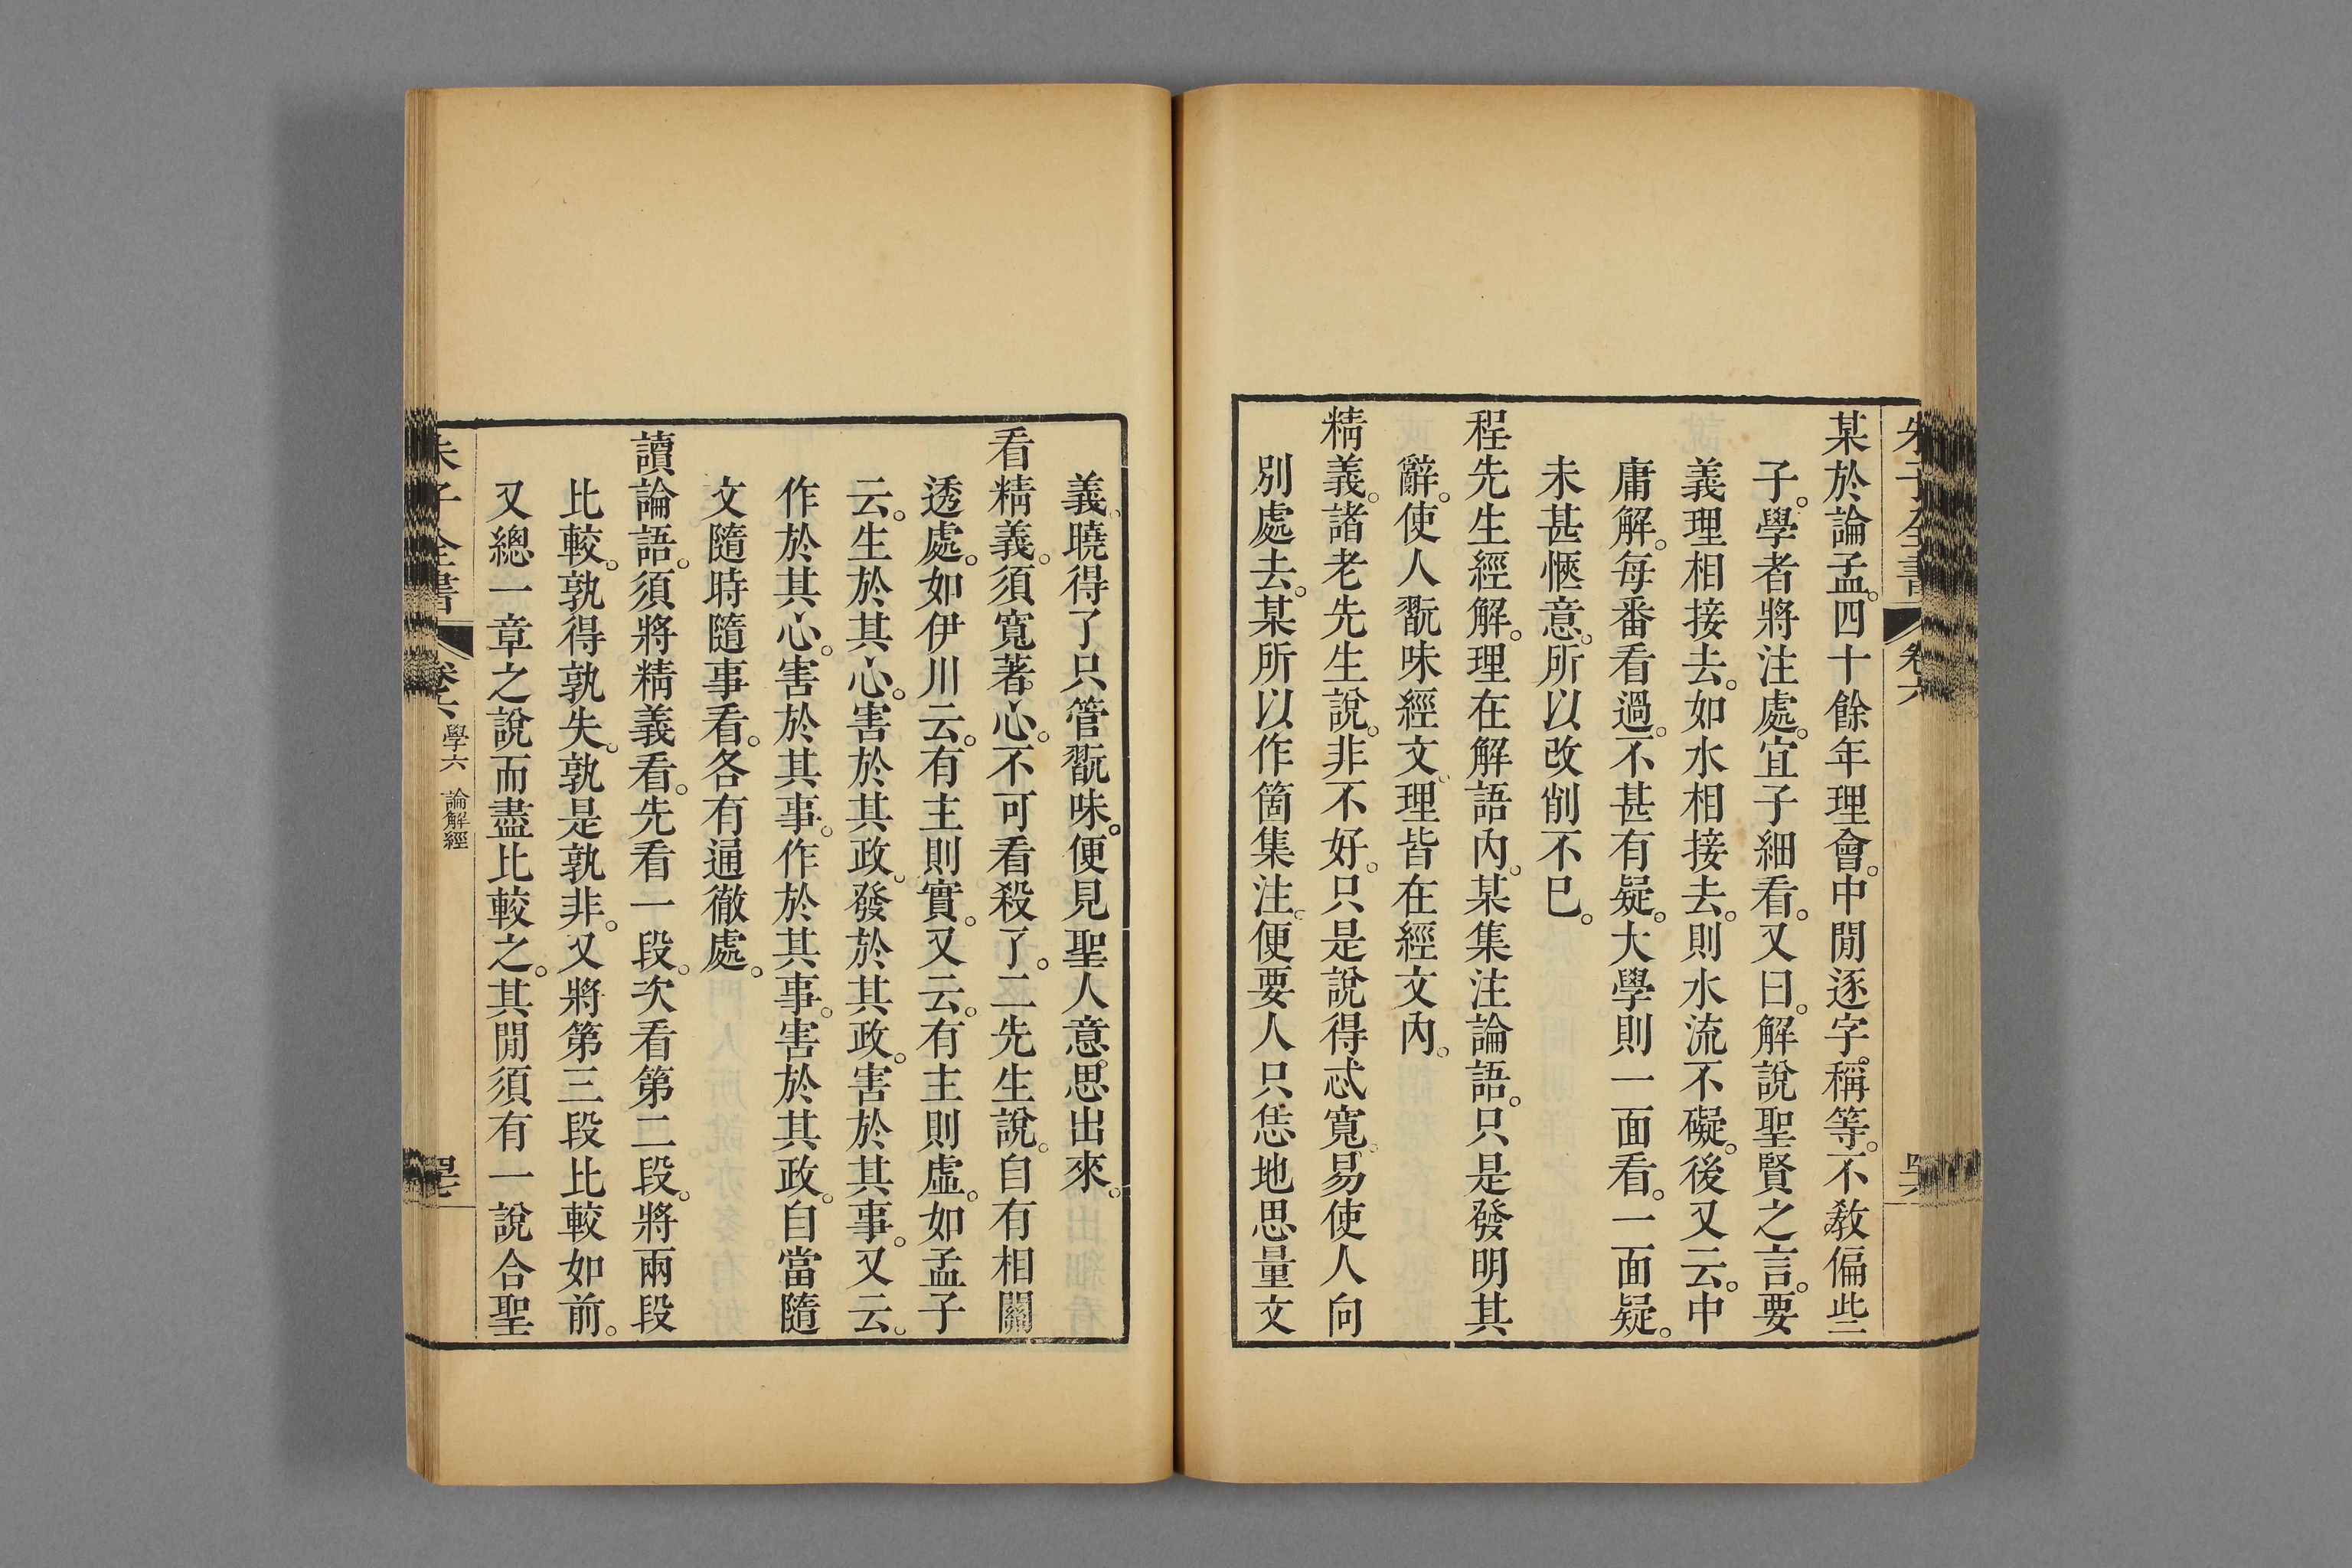 某於論孟。四十餘年理會。中閒逐字。稱等。不教偏些
子。學者將注處。宜子細看。又曰。解說聖賢之言。要
義理相接去。如水相接去。則水流不礙。後又云。中
庸解。每番看過。不甚有疑。大學則一面看。一面疑。
未甚愜意。所以改削不已。
程先生經解。理在解語內。某集注論語。只是發明其
辭。使人翫味經文。理皆在經文內。
精義。諸老先生說。非不好。只是說得忒寬。易使人向
別處去。某所以作箇集注。便要人只恁地思量文
義。曉得了只管翫味。便見聖人意。思出來。
看精義。須寬著。心。不可看殺了。二先生說。自有相關
透處。如伊川云。有主則實。又云。有主則虛。如孟子
云。生於其心。害於其政。發於其政。害於其事。又云。
作於其心。害於其事。作於其事。害於其政。自當隨
文隨時隨事看。各有通徹處。
讀論語。須將精義看。先看一段。次看第二段。將兩段
比較。孰得孰失。孰是孰非。又將第三段比較如前。
又總一章之說而盡比較之。其閒須有一說合聖
朱子全書 卷六 學六 論解經